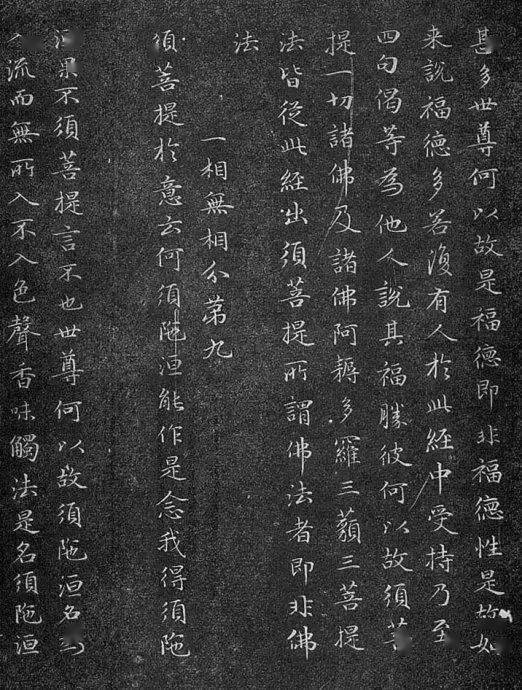 甚多世尊何以故是福德即非福德性是故如
来說福德多若復有人於此經中受持乃至
四句偈等為他人說其福勝彼何以故須菩
提一切諸佛及諸佛阿耨多羅三藐三菩提
法皆從此經出須菩提所謂佛法者即非佛
法
一相無相分第九
須菩提於意云何須陁洹能作是念我得須陁
洹果不須菩提言不也世尊何以故須陁洹名為
入流而無所入不入色聲香味觸法是名須陁洹